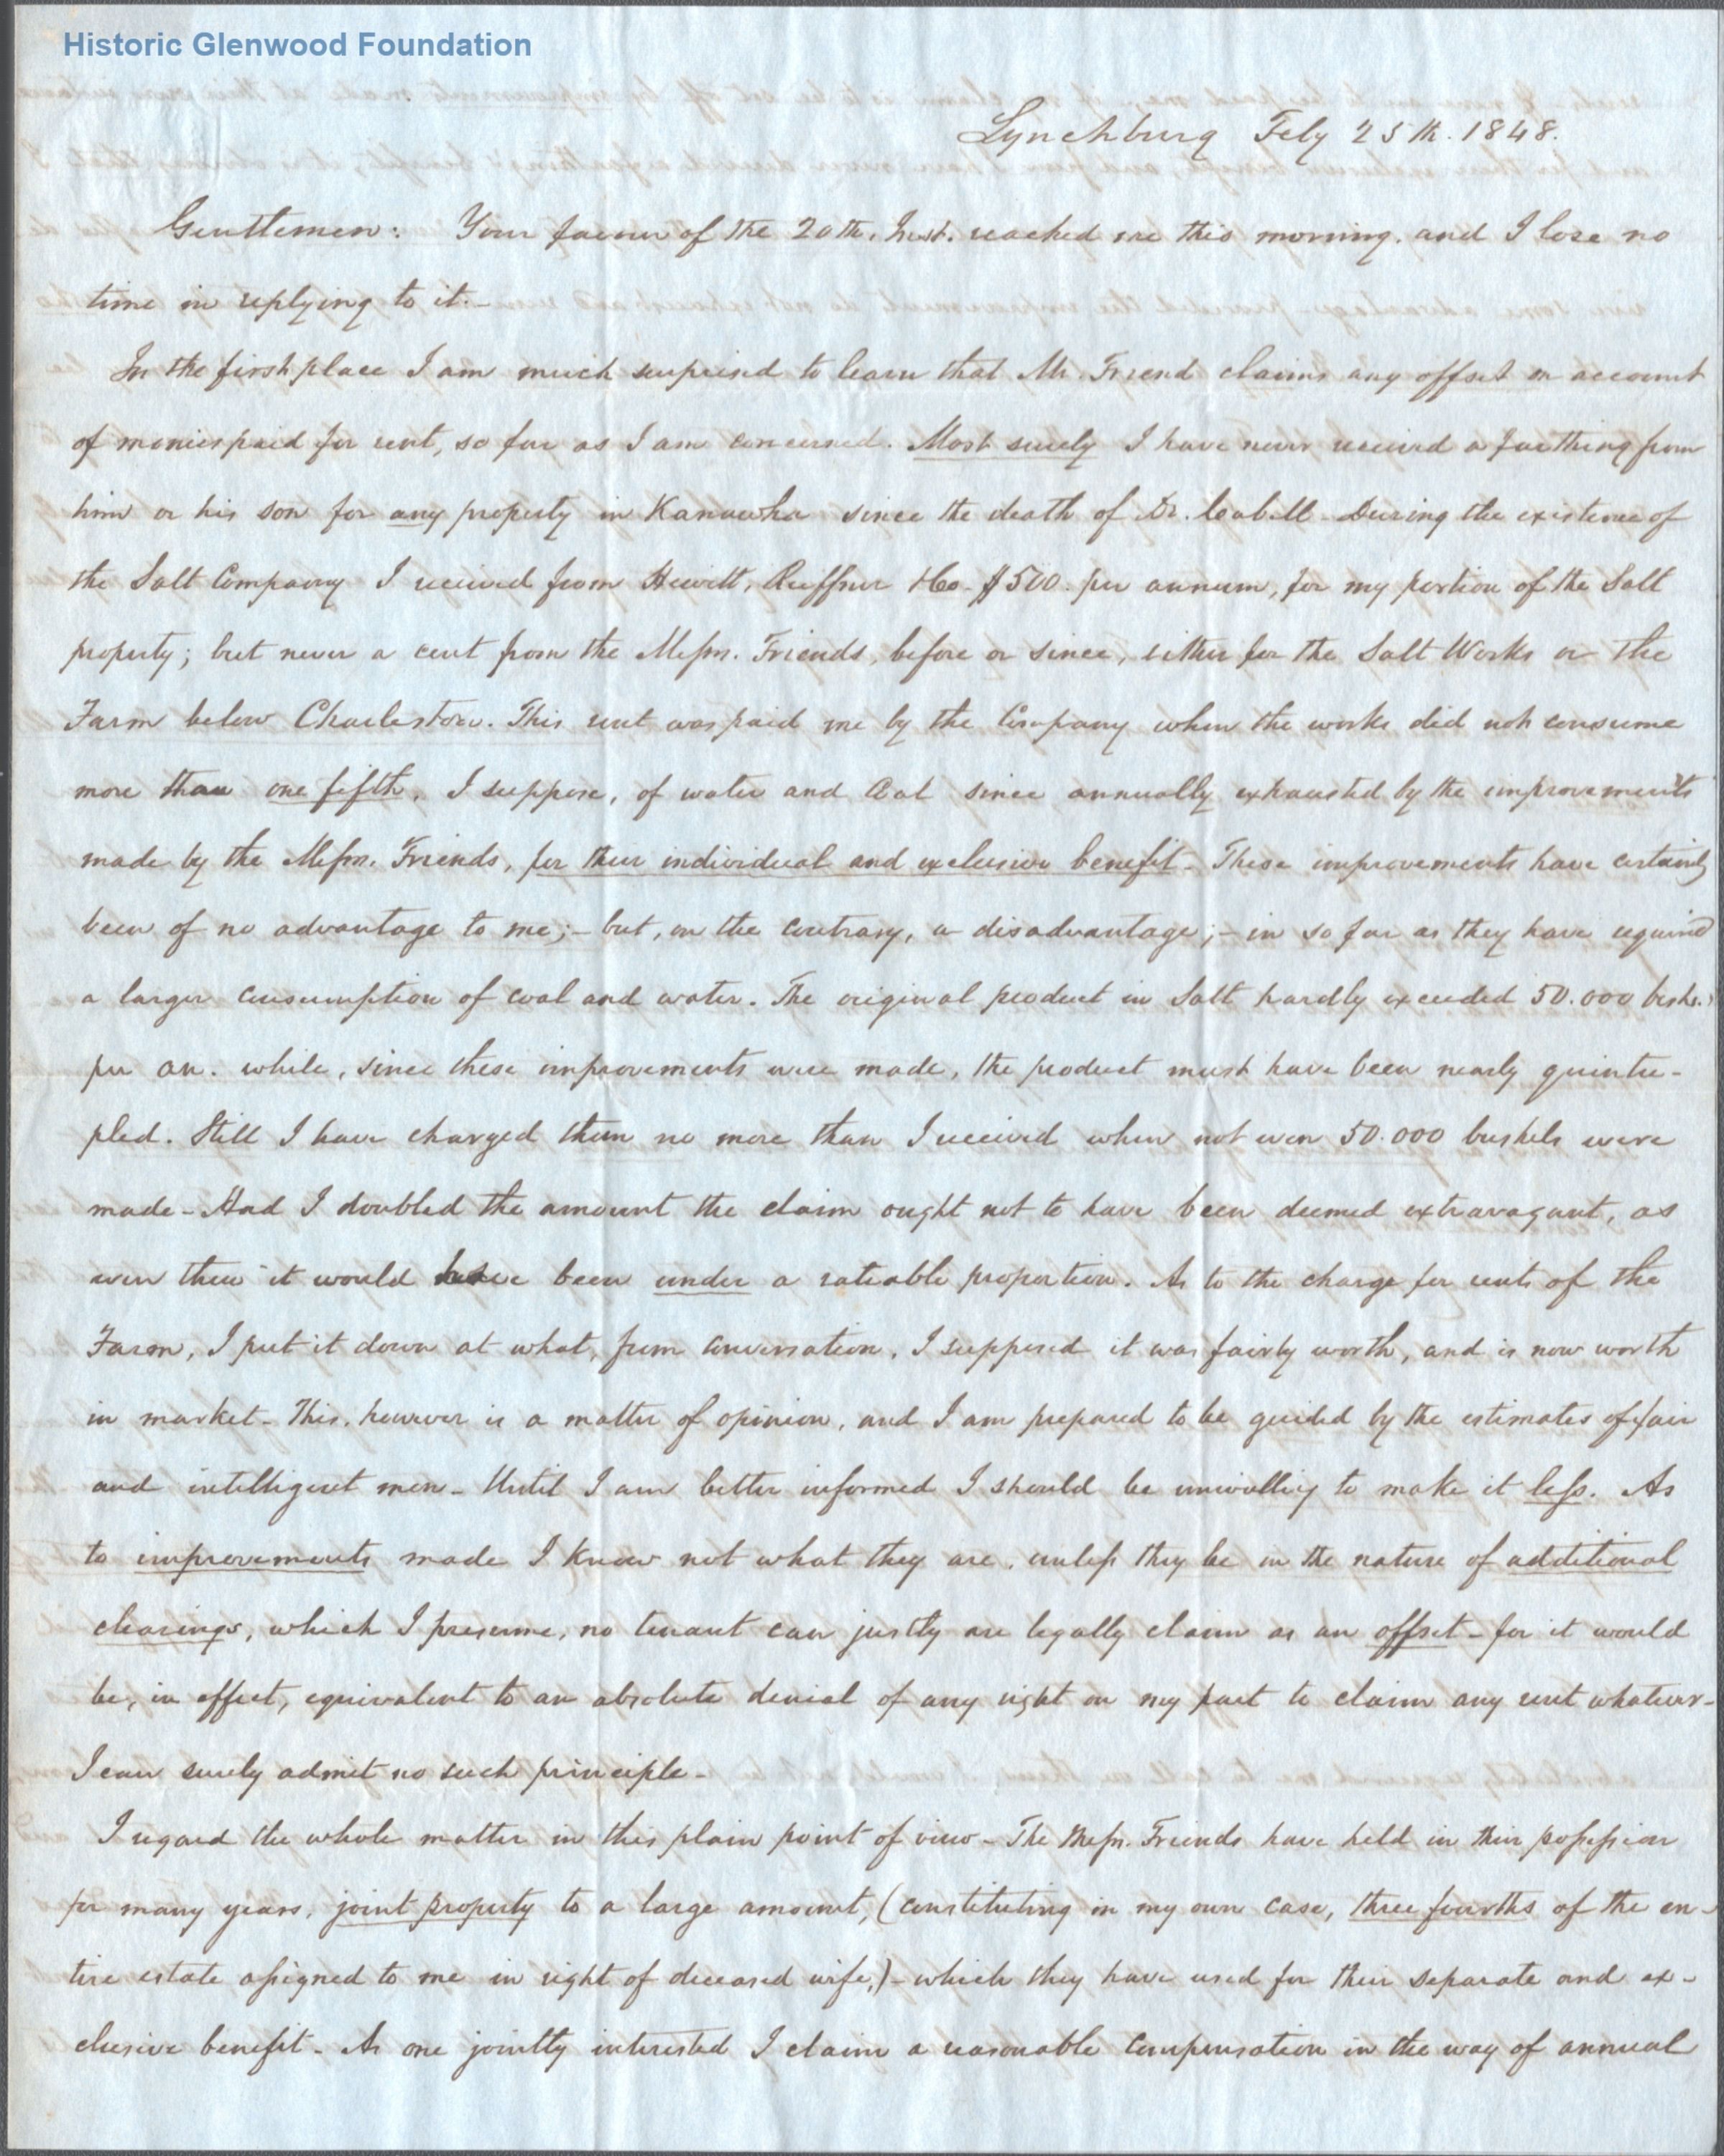 Historic Glenwood Foundation
Lynchburg Feby 25th. 1848.
Gentlemen: Your favour of the 20th. Inst. reached me this morning, and I lose no
time in replying to it.-
In the first place I am much surprised to learn that Mr. Friend claims any offset on account
of monies paid for rent, so far as I am concerned. Most surely I have never received a farthing from
him or his son for any property in Kanawha since the death of Dr. Cabell - During the existence of
the Salt Company I received from Hewitt, Ruffner & Co. $500. per annum, for my portion of the Salt
property; but never a cent from the Messrs. Friends, before or since, either for the Salt Works or the
Farm below Charleston. This rent was paid me by the Company when the works did not consume
more than one fifth, I suppose, of water and Coal since annually exhausted by the improvements
made by the Messrs. Friends, for their individual and exclusive benefit - These improvements have certainly
been of no advantage to me; - but, on the contrary, a disadvantage; - in so far as they have required
a larger consumption of coal and water. The original product in Salt hardly exceeded 50.000 bushs.
per an. while, since these improvements were made, the product must have been nearly quintu-
pled. Still I have charged them no more than I received when not even 50.000 bushels were
made - Had I doubled the amount the claim ought not to have been deemed extravagant, as
even then it would have been under a rateable proportion. As to the charge for rents of the
Farm, I put it down at what, from conversation, I supposed it was fairly worth, and is now worth
in market - This, however is a matter of opinion, and I am prepared to be guided by the estimates of fair
and intelligent men - Until I am better informed I should be unwilling to make it less. As
to improvements made I know not what they are, unless they be in the nature of additional
clearings, which I presume, no tenant can justly or legally claim as an offset - for it would
be, in effect, equivalent to an absolute denial of any right on my part to claim any rent whatever -
I can surely admit no such principle -
I regard the whole matter in this plain point of view - The Messrs. Friends have held in their possession
for many years, joint property to a large amount, (constituting in my own case, three fourths of the en-
tire estate assigned to me in right of deceased wife,) - which they have used for their separate and ex-
clusive benefit - As one jointly interested I claim a reasonable compensation in the way of annual